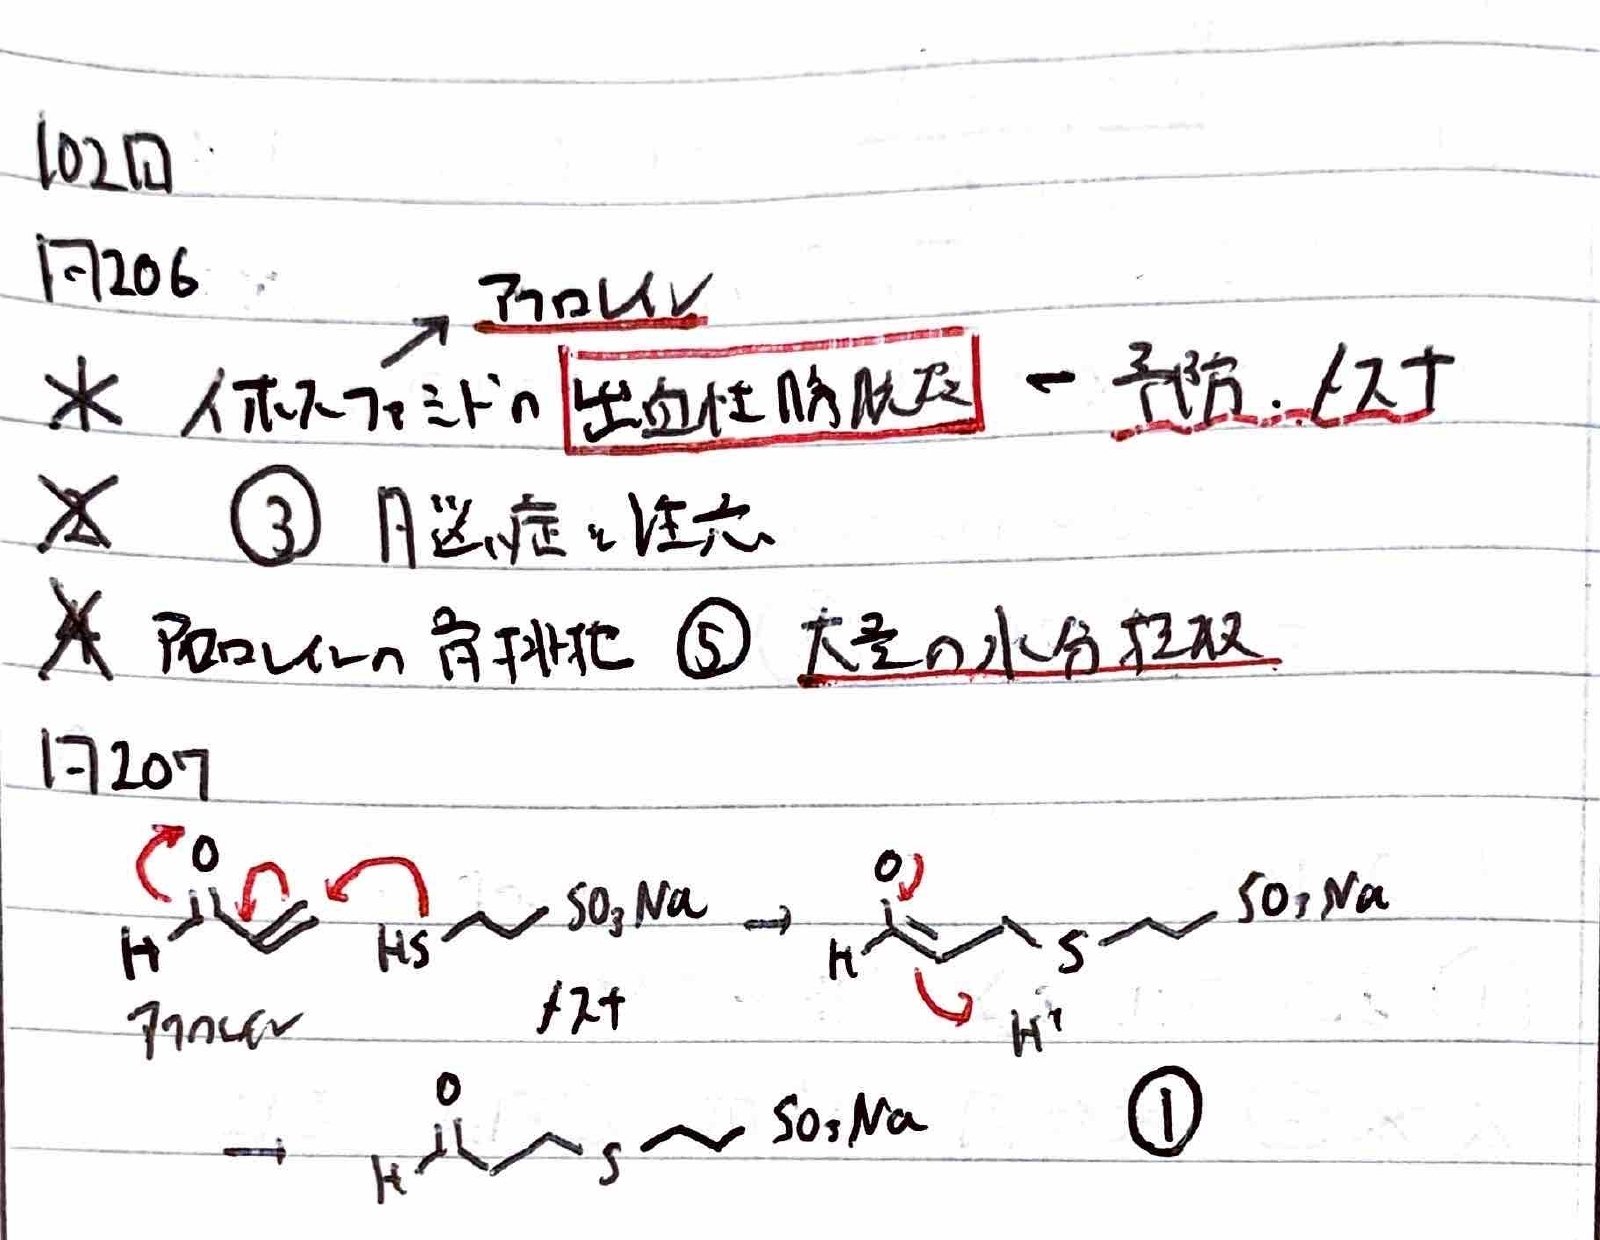 102回
問206
アクロレイン
イホスファミドの 出血性膀胱炎 ー 予防.メスナ
③ 脳症に注意
アクロレインの 尿排泄 ⑤ 大量の水分摂取
問207
O O
H HS SO₃Na → H S SO₃Na
アクロレイン メスナ H⁺
→ H O S SO₃Na ①